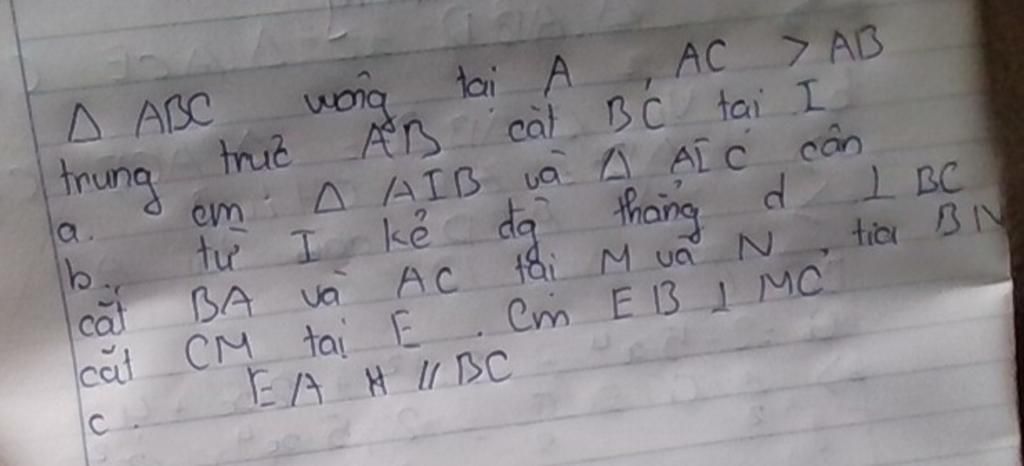 Δ ABC vuông tại A, AC > AB
trung trực AB cắt BC tại I
a. cm Δ AIB và Δ AIC cân
b. từ I kẻ đg thẳng d ⊥ BC
cắt BA và AC tại M và N, tia BN
cắt CM tại E. Cm EB ⊥ MC
c. EA // BC